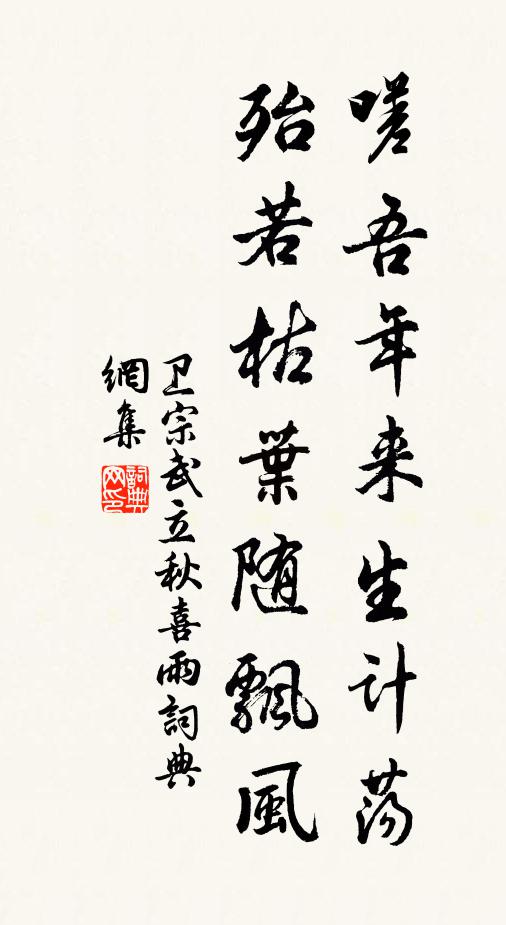 嗟吾年来生计荡
殆若枯葉随飄風
卫宗武立秋喜雨詞典
網集
詞典网印